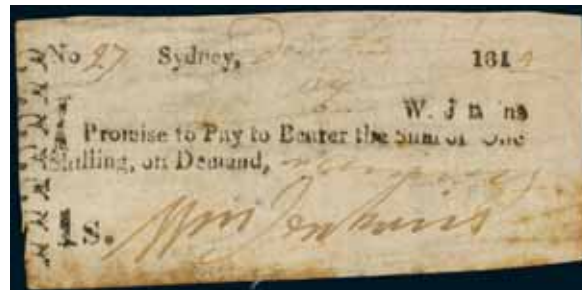 No 27 Sydney, 181
W. J
I Promise to Pay to Bearer the Sum of One
Shilling, on Demand,
1s. Wm Jenkins